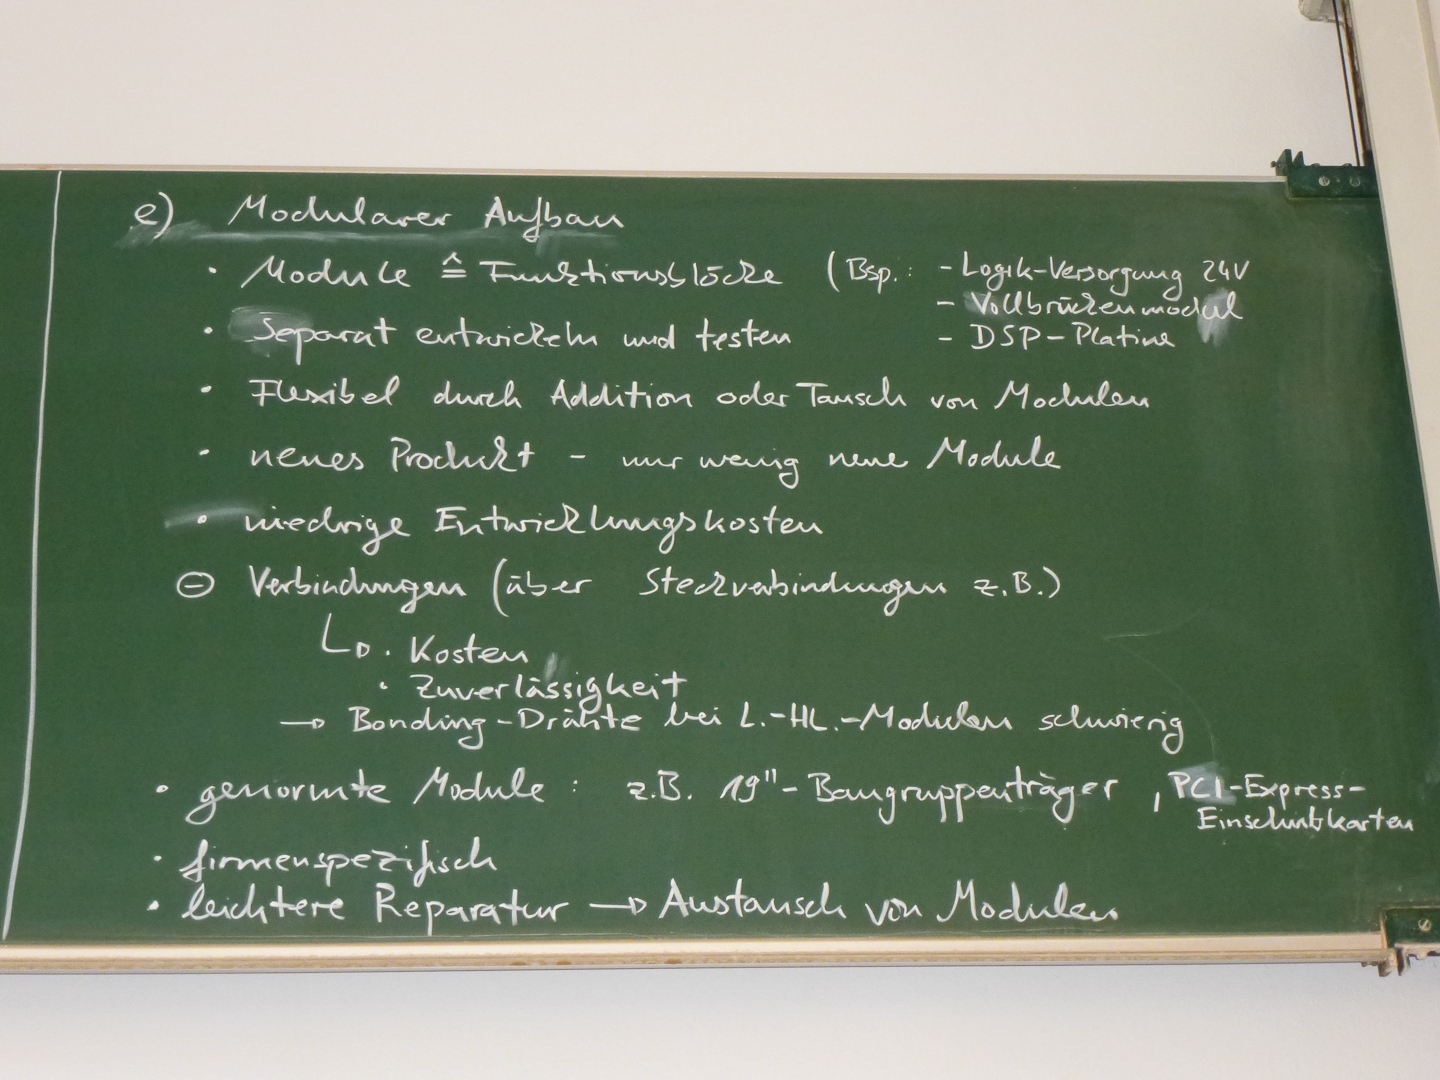 e) Modularer Aufbau
• Module ≙ Funktionsblöcke (Bsp.: - Logik-Versorgung 24V
- Vollbrückenmodul
• Separat entwickeln und testen - DSP-Platine
• Flexibel durch Addition oder Tausch von Modulen
• neues Produkt - nur wenig neue Module
• niedrige Entwicklungskosten
⊖ Verbindungen (über Steckverbindungen z.B.)
↳ • Kosten
• Zuverlässigkeit
→ Bonding-Drähte bei L.-HL.-Modulen schwierig
• genormte Module: z.B. 19"-Baugruppenträger, PCI-Express-
Einschubkarten
• firmenspezifisch
• leichtere Reparatur → Austausch von Modulen